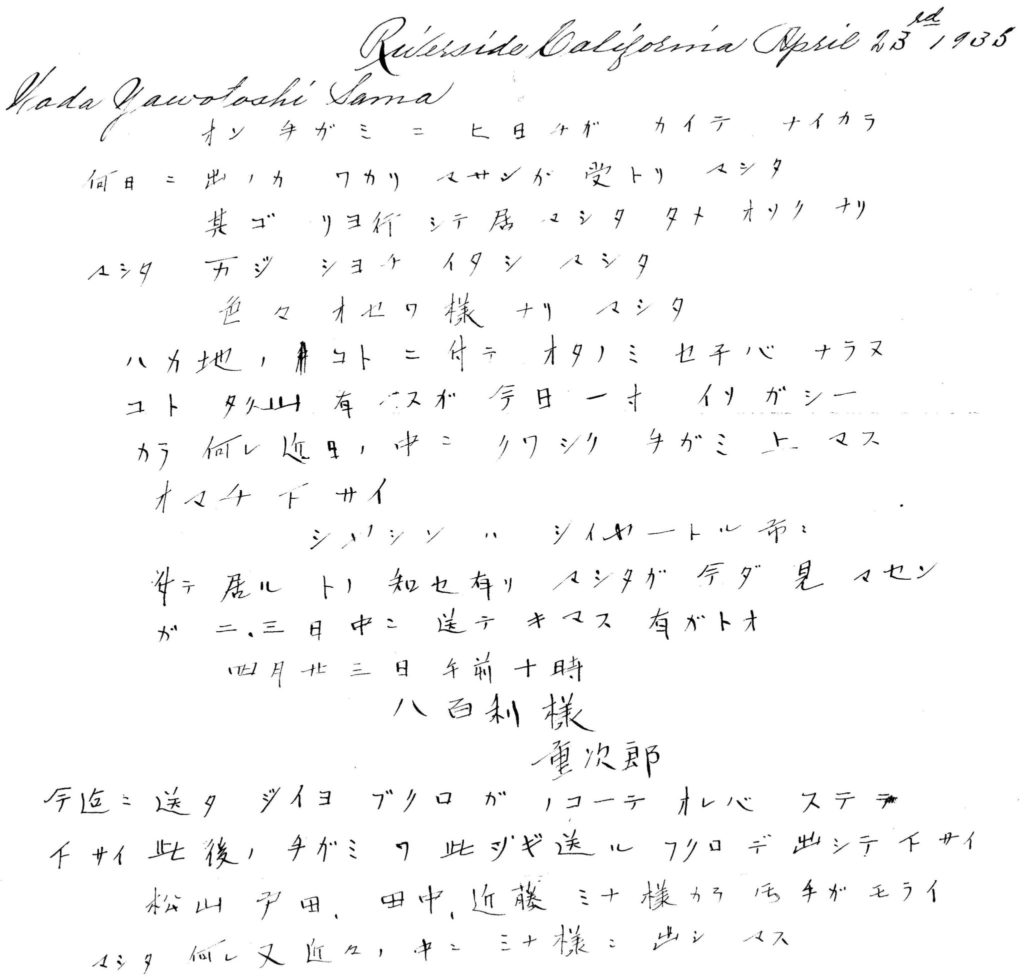 Riverside California April 23rd 1935
Wada Yawotoshi Sama
オン 手ガミ ニ ヒ日ナガ カイテ ナイカラ
何日ニ 出ノカ ワカリ マサンガ 受トリ マシタ
其ゴ リヨ行 シテ 居 マシタ タメ オソク ナリ
マシタ 万ジ ショチ イタシ マシタ
色々 オセワ様 ナリ マシタ
ハカ地ノ コトニ付テ オタノミ セ子バ ナラヌ
コト タク山 有 マスガ 今日 一寸 イソガシー
カラ 何レ 近日ノ 中ニ クワシク 手ガミ 上 マス
オマチ 下サイ
シヤシン ハ シイヤートル 市ニ
居ル トノ 知セ有リ マシタガ 今ダ 見 マセン
ガ 二、三日中ニ 送テ キマス 有ガトオ
四月廿三日 午前十時
八百利様
重次郎
今迠ニ 送タ ジイヨ ブクロガ ノコーテ オレバ ステテ
下サイ 此後ノ 手ガミワ 此 送ル フクロデ 出シテ下サイ
松山 田、田中、近藤 ミナ様カラ 手ガ モライ
マシタ 何レ 又 近々ノ 中ニ ミナ様ニ 出シ マス